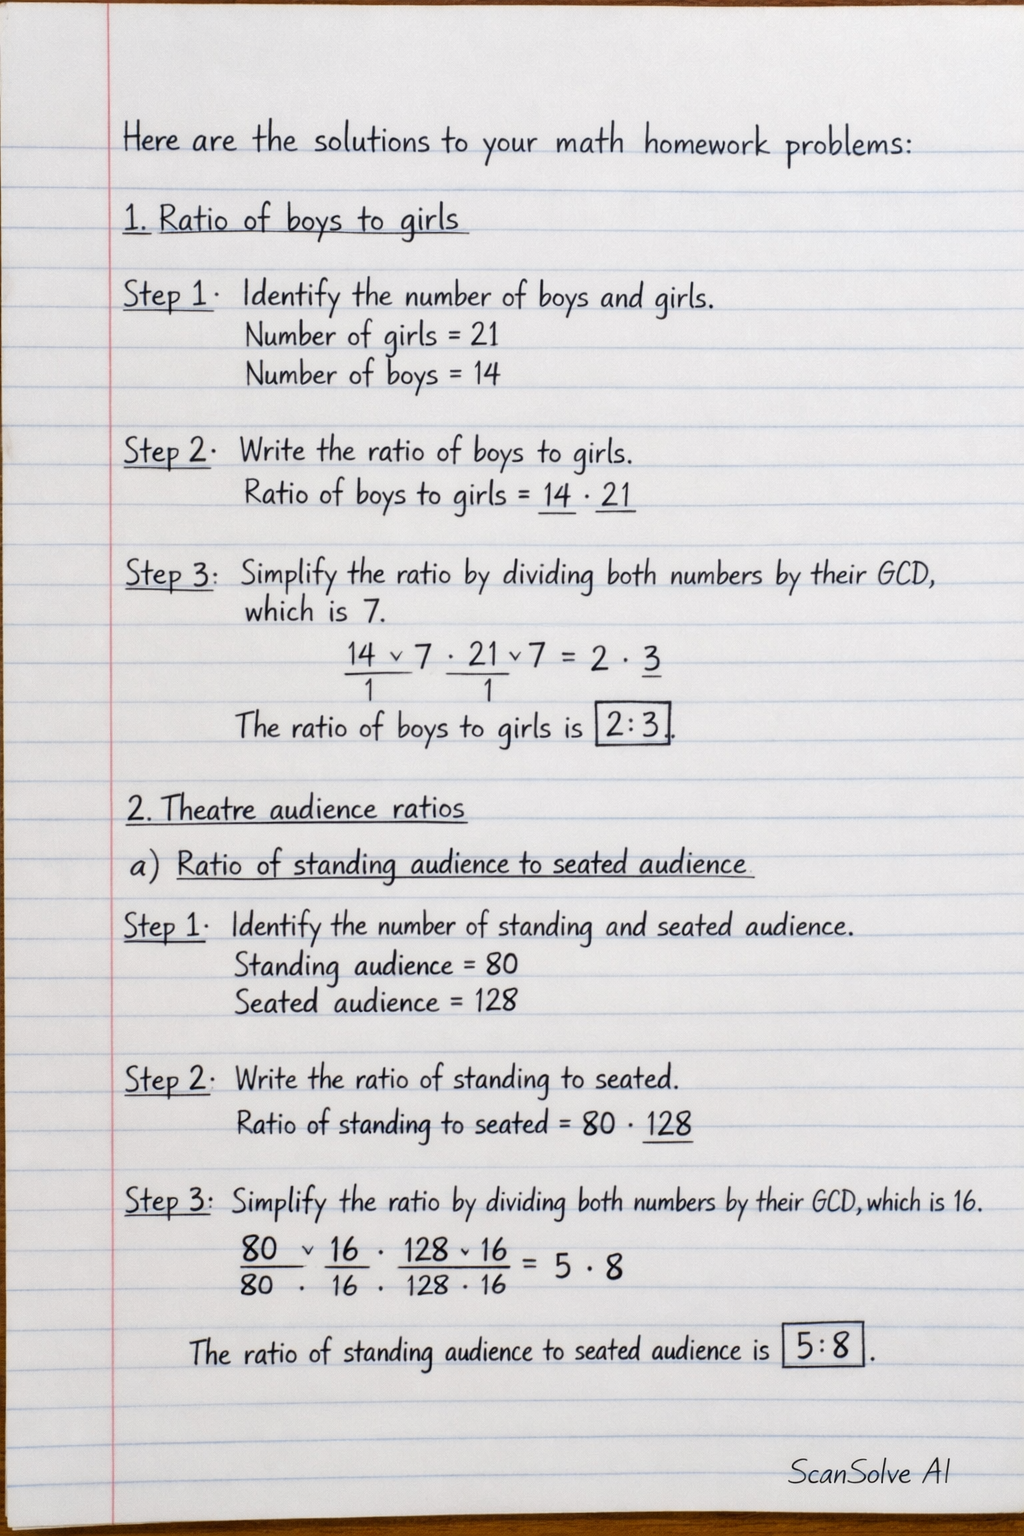 Here are the solutions to your math homework problems:
1. Ratio of boys to girls
Step 1· Identify the number of boys and girls.
Number of girls = 21
Number of boys = 14
Step 2· Write the ratio of boys to girls.
Ratio of boys to girls = 14 · 21
Step 3: Simplify the ratio by dividing both numbers by their GCD,
which is 7.
14 ˅ 7 · 21 ˅ 7 = 2 · 3
1 1
The ratio of boys to girls is 2:3.
2. Theatre audience ratios
a) Ratio of standing audience to seated audience.
Step 1· Identify the number of standing and seated audience.
Standing audience = 80
Seated audience = 128
Step 2· Write the ratio of standing to seated.
Ratio of standing to seated = 80 · 128
Step 3: Simplify the ratio by dividing both numbers by their GCD, which is 16.
80 ˅ 16 · 128 ˅ 16 = 5 · 8
80 · 16 · 128 · 16
The ratio of standing audience to seated audience is 5:8.
ScanSolve AI